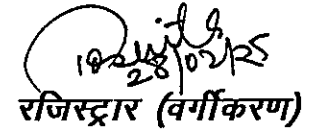 28/02/25
रजिस्ट्रार (वर्गीकरण)